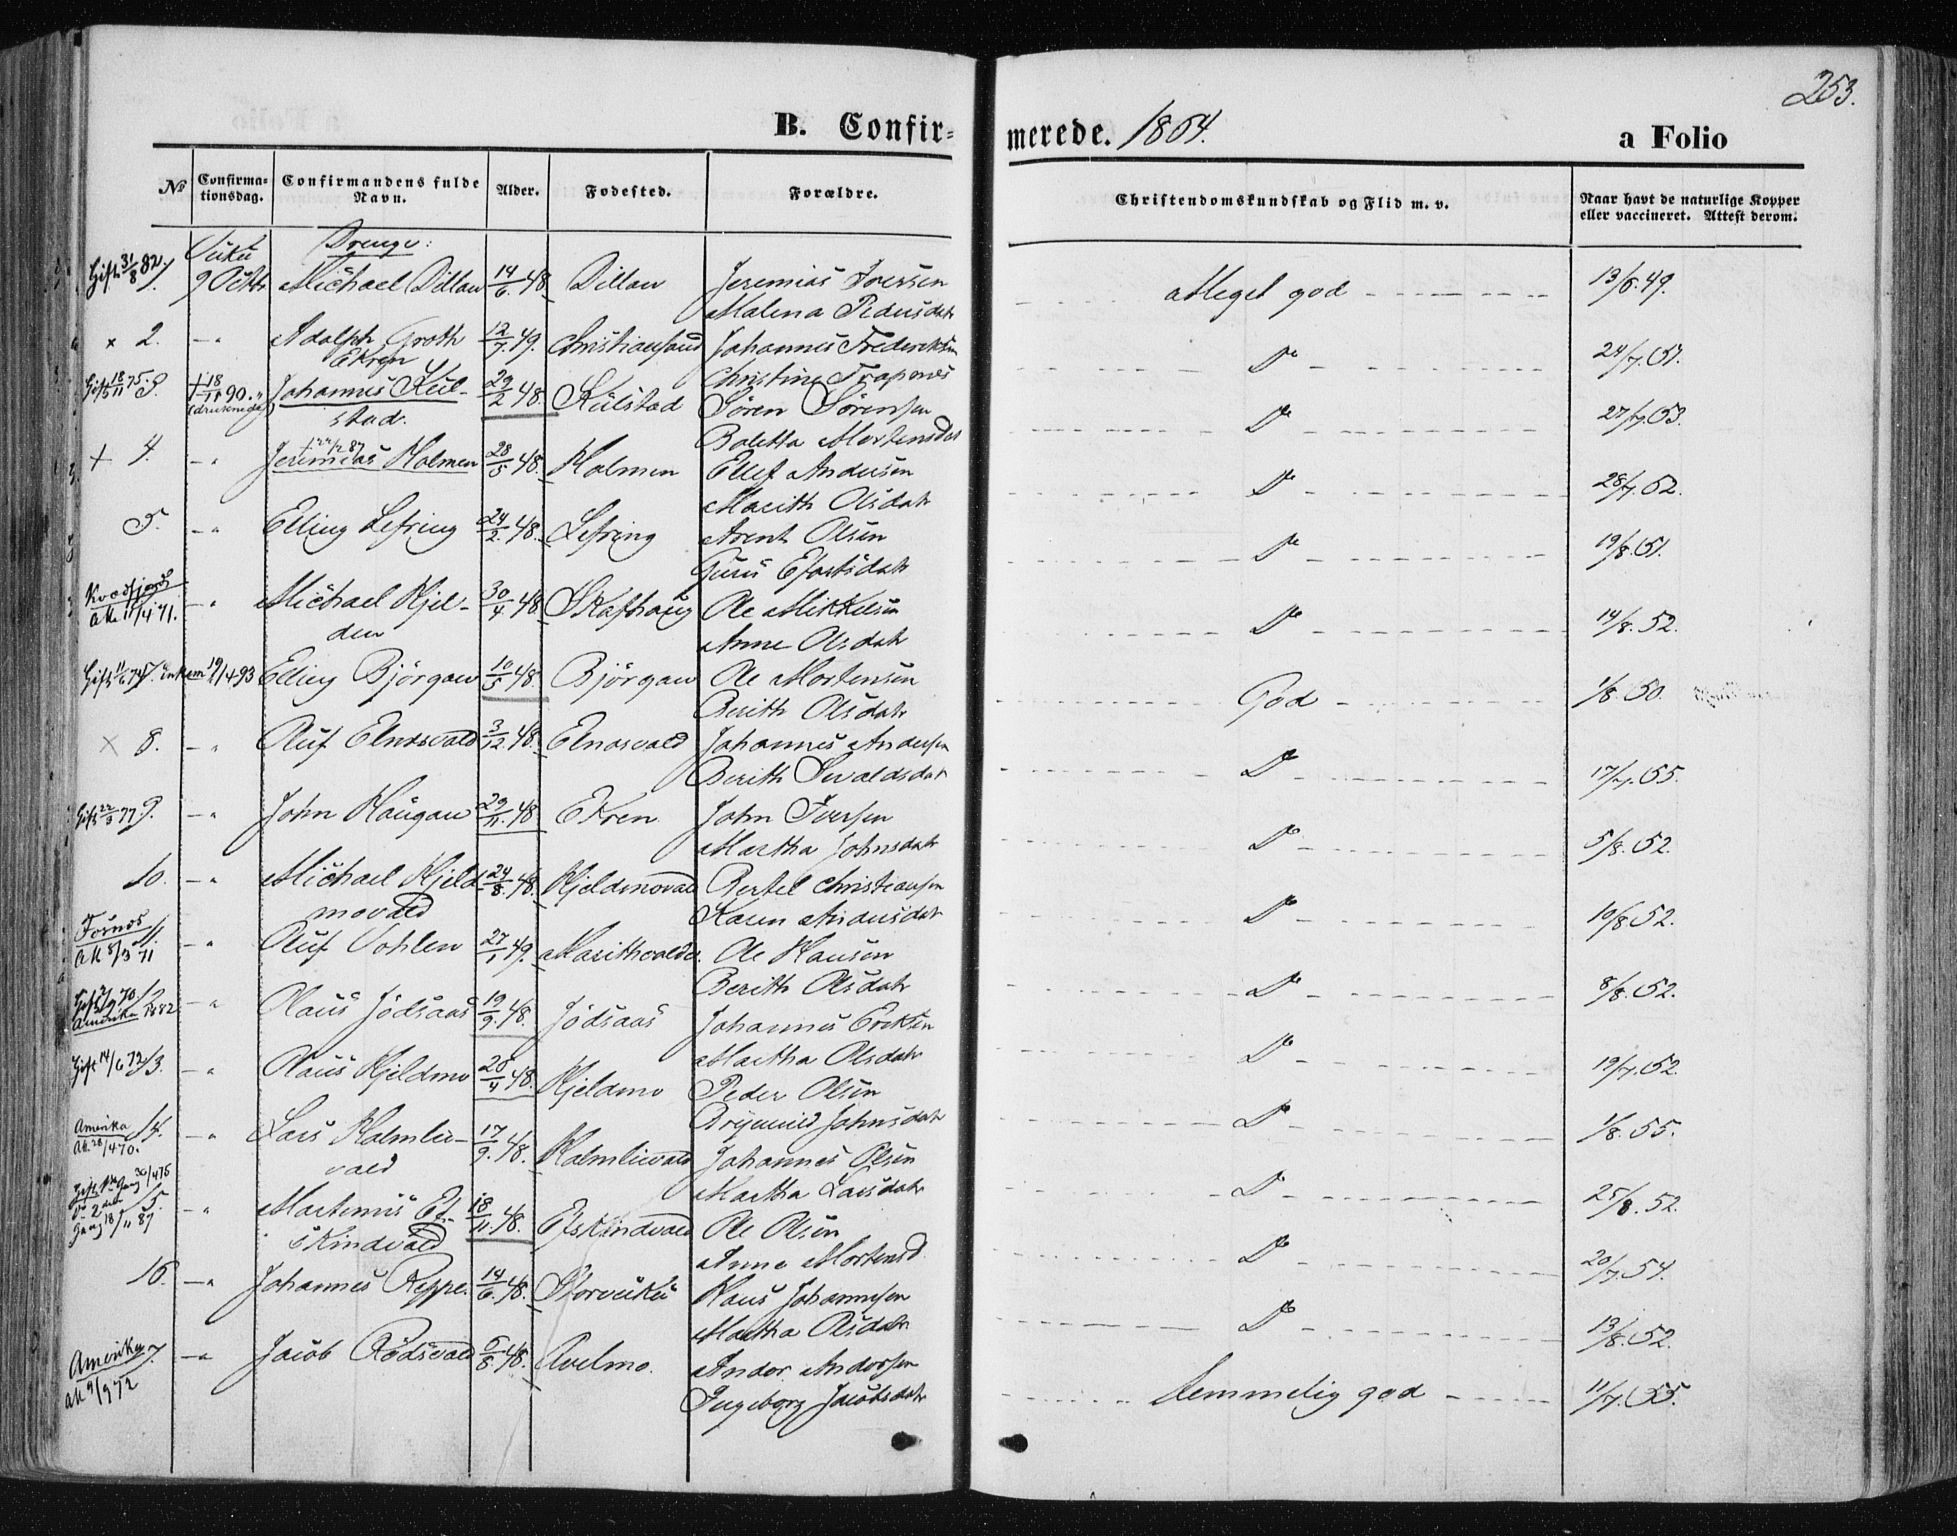 253.
B. Confir-
merede. 1864.
a Folio
No
Confirma-
tionsdag.
Confirmandens fulde
Navn.
Alder.
Fødested.
Forældre.
Christendomskundskab og Flid m. v.
Naar havt de naturlige Kopper
eller vaccineret. Attest derom.
Drenge:
Gift 31/8 82 1. 9 Octbr Michael Dillan 14/6. 48. Dillan Jeremias Iversen Meget god 13/6. 49.
Malena Pedersdatr
× 2. - " Adolph Groth 12/7. 49. Christiansund Johannes Frederiksen Do 24/7. 51.
Ekren Christine Trapnes
Gift 18/11 75 3. † 18/11 90. " Johannes Kül- 29/2 48. Külstad Sören Sörensen Do 27/7. 53.
(druknede) stad. Boletta Mortensdr
† 22/2 87
+ 4. - " Jeremias Holmen 28/5 48. Holmen Ellef Andersen Do 28/7. 52.
Marith Olsdatr
5. - " Elling Lefring 24/2. 48. Lefring Arent Olsen Do 19/8. 51.
Guru
Kvædfjord
Att. 11/4 71. - " Michael Hjel- 30/4 48. Skafhaug Ole Mikkelsen Do 14/8. 52.
den Anne Olsdatr
Gift 11/6 74 7. 19/1 493 Elling Björgan 10/5 48. Björgan Ole Mortensen God 1/8. 50.
Berith Olsdatr
× 8. - " Oluf Elnesvald 3/12. 48. Elnesvald Johannes Andersen Do 17/7. 55.
Berith Sivaldsdatr
Gift 22/3 77 9. - " John Haugan 29/11. 48. Ekren John Iversen Do 5/8. 52.
Martha Johnsdatr
10. - " Michael Hjeld 24/8. 48. Hjeldmovald Bertel Christiansen Do 19/8. 52.
movald Karen Andersdatr
Fosnes
Att 8/3 71 11. - " Oluf Vohlen 27/1 49. Marithvolden Ole Hansen Do 8/8. 52.
Berith Olsdatr
12. - " Claus Jödsaas 19/9. 48. Jödsaas Johannes Eriksen Do 19/7. 52.
Amerika 1882 Martha Olsdatr
Gift 14/6 72 13. - " Claus Hjeldmo 28/4 48. Hjeldmo Peder Olsen Do 1/8. 55.
Johnsdatr
Amerika
Att. 28/4 70. 14. - " Lars Halmlie- 17/9. 48. Halmlievald Johannes Olsen Do 25/8. 52.
vald Martha Larsdatr
Gift 1ste Gang 30/4 75
Do 2den
Gang 18/11 87 15. - " Martinus Ef- 18/11. 48. Efskindvald Ole Olsen Do 20/7. 54.
skindvald Anne Mortensd.
16. - " Johannes Reppe. 14/6. 48. Storvuku Haus Johannesen Do 13/8. 52.
Martha Olsdatr
Amerika
Att 9/9 72 17. - " Jacob Rödsvald 6/8. 48. Ovelmo. Andor Andersen Temmelig god 11/7. 55.
Ingeborg Jacobsdatr